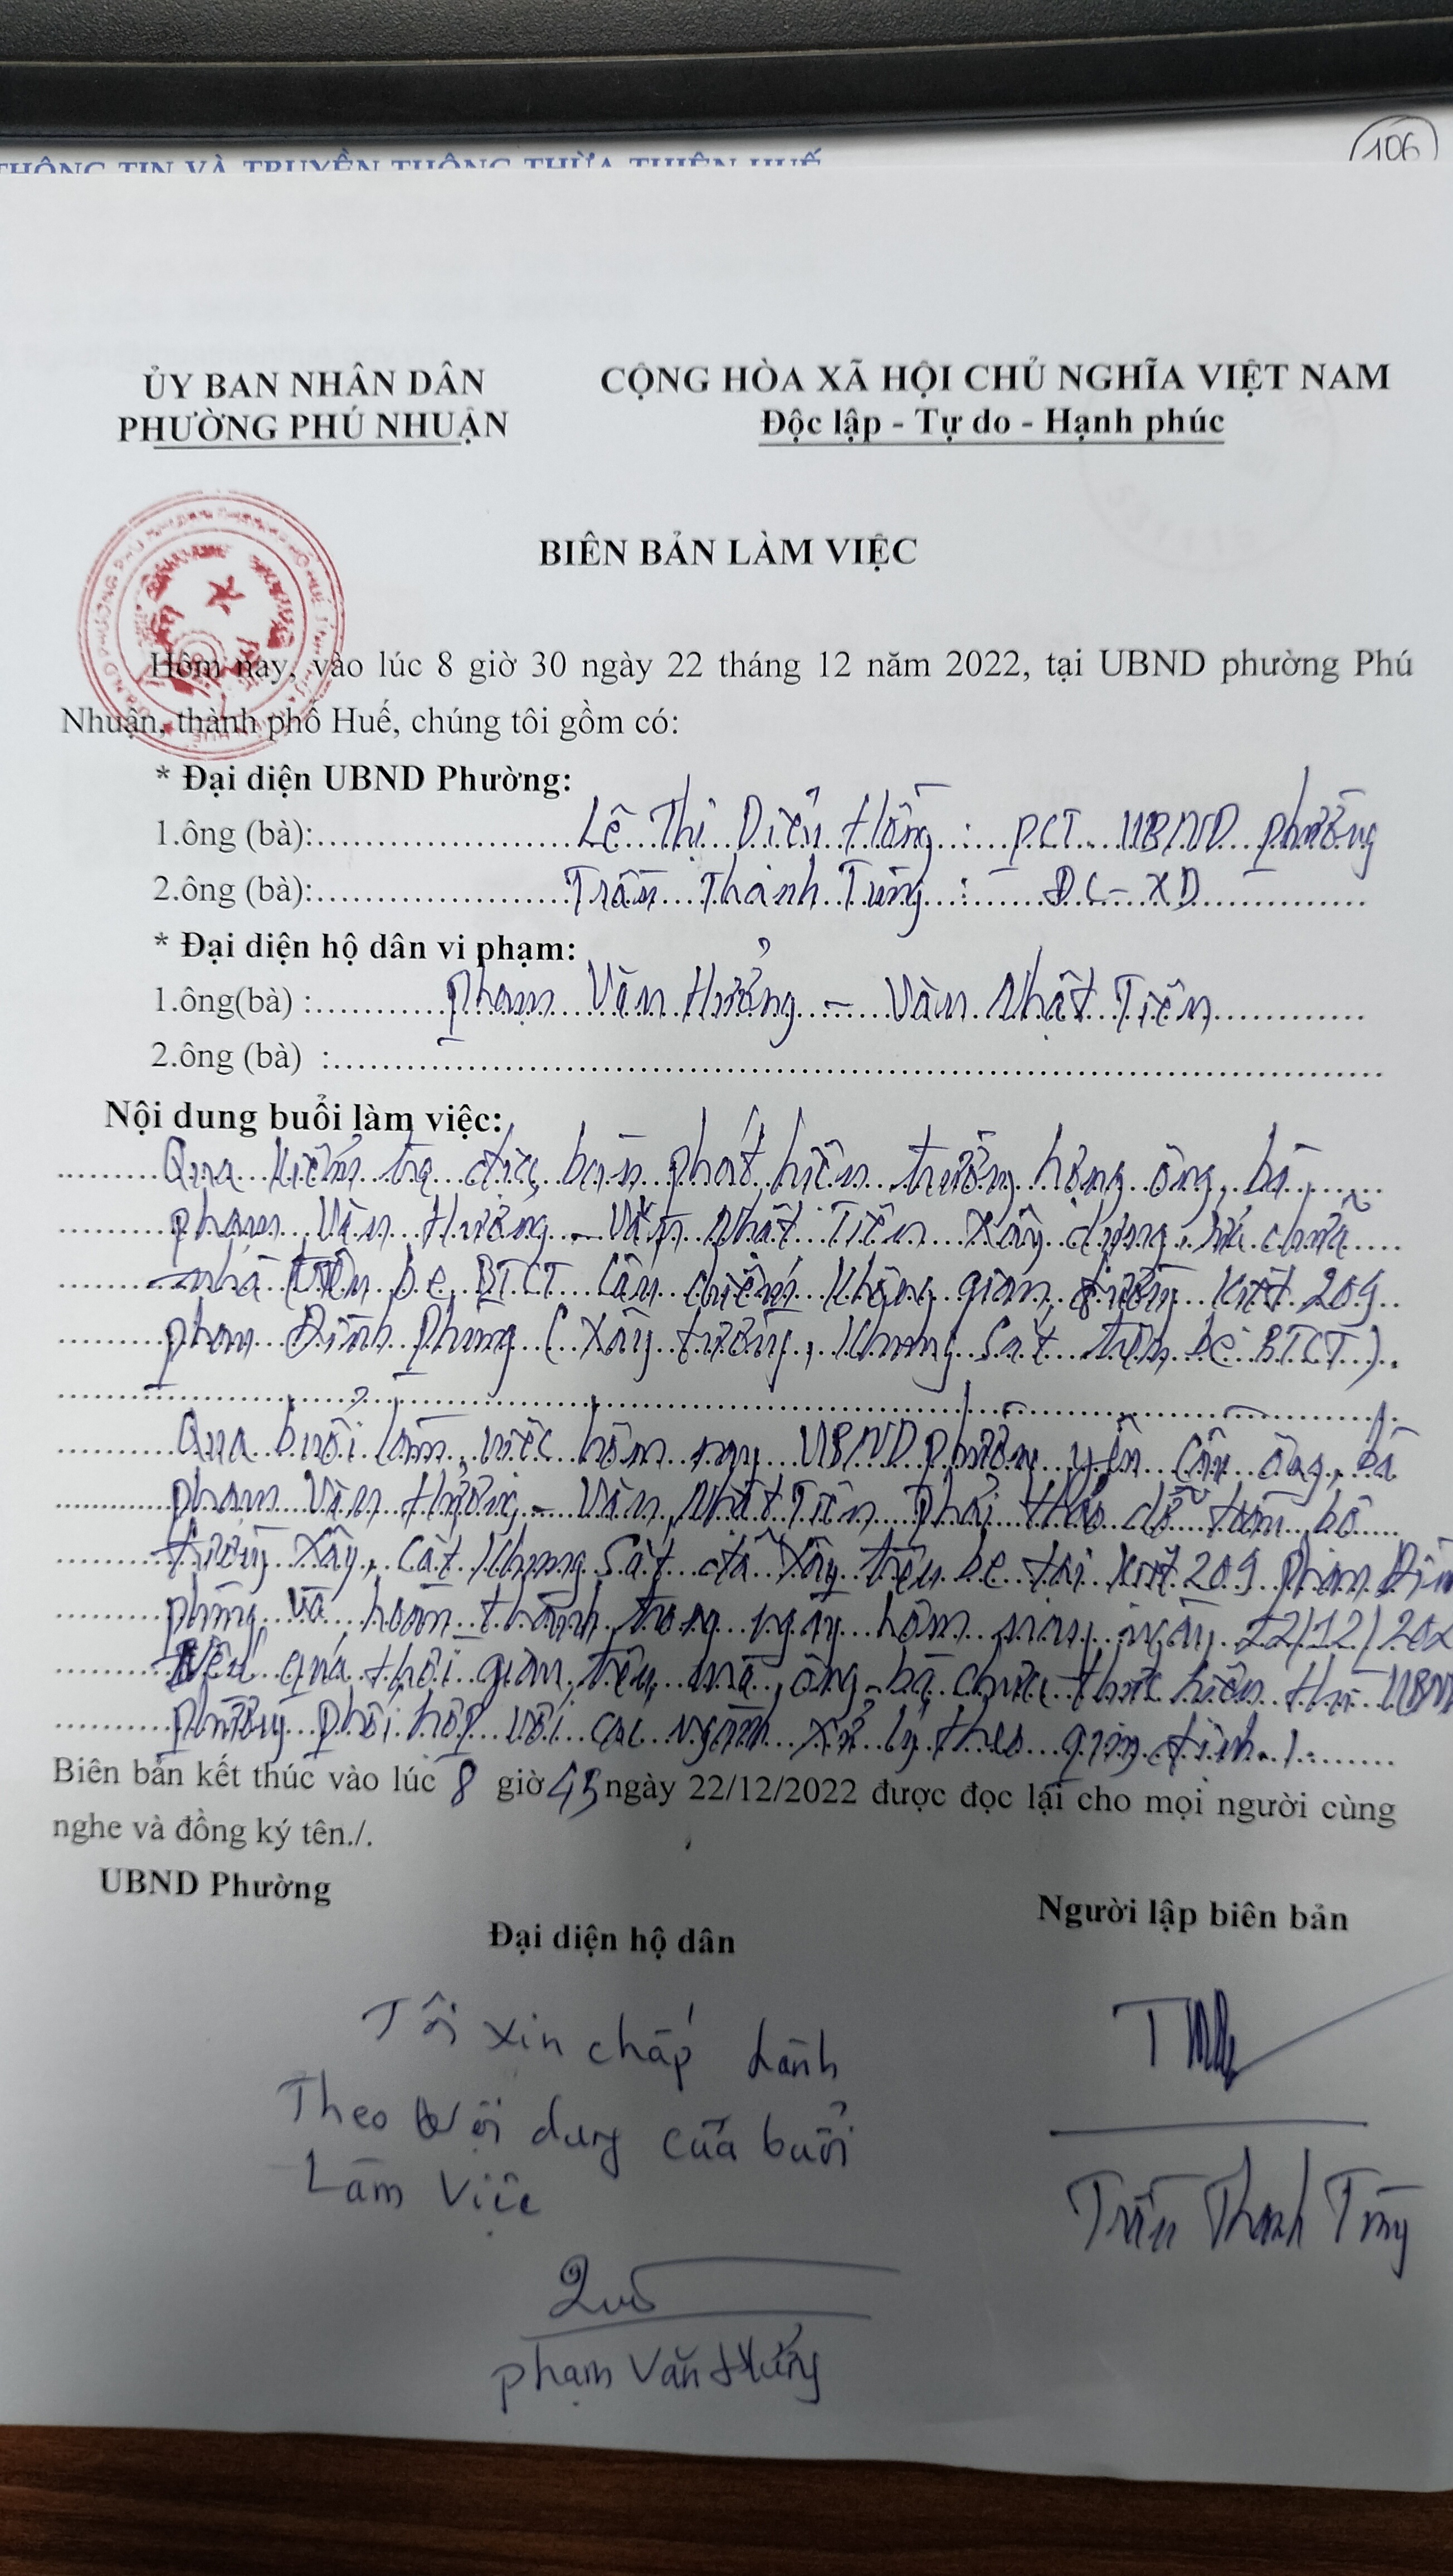 THÔNG TIN VÀ TRUYỀN THÔNG THỪA THIÊN HUẾ
106
ỦY BAN NHÂN DÂN
PHƯỜNG PHÚ NHUẬN
CỘNG HÒA XÃ HỘI CHỦ NGHĨA VIỆT NAM
Độc lập - Tự do - Hạnh phúc
BIÊN BẢN LÀM VIỆC
Hôm nay, vào lúc 8 giờ 30 ngày 22 tháng 12 năm 2022, tại UBND phường Phú
Nhuận, thành phố Huế, chúng tôi gồm có:
* Đại diện UBND Phường:
1.ông (bà): Lê Thị Diệu Hồng : PCT UBND phường
2.ông (bà): Trần Thanh Tùng : ĐC-XD
* Đại diện hộ dân vi phạm:
1.ông(bà) : Phạm Văn Hưởng - Văn Nhật Tiên
2.ông (bà) :
Nội dung buổi làm việc:
Qua kiểm tra địa bàn phát hiện trường hợp ông, bà
Phạm Văn Hưởng - Văn Nhật Tiên xây dựng, sửa chữa
nhà trên bê BTCT lấn chiếm không gian đường kiệt 209
Phan Đình Phùng (xây tường, khung sắt trên bê BTCT).
Qua buổi làm việc hôm nay UBND phường yêu cầu ông, bà
Phạm Văn Hưởng - Văn Nhật Tiên phải tháo dỡ toàn bộ
tường xây, cắt khung sắt đã xây trên bê tại kiệt 209 Phan Đình
Phùng và hoàn thành trong ngày hôm nay, ngày 22/12/202
Nếu quá thời gian trên, mà ông, bà chưa thực hiện thì UBND
phường phối hợp với các ngành xử lý theo quy định./.
Biên bản kết thúc vào lúc 8 giờ 45 ngày 22/12/2022 được đọc lại cho mọi người cùng
nghe và đồng ký tên./.
UBND Phường
Đại diện hộ dân
Người lập biên bản
Tôi xin chấp hành
Theo nội dung của buổi
Làm việc
Trần Thanh Tùng
Phạm Văn Hưởng